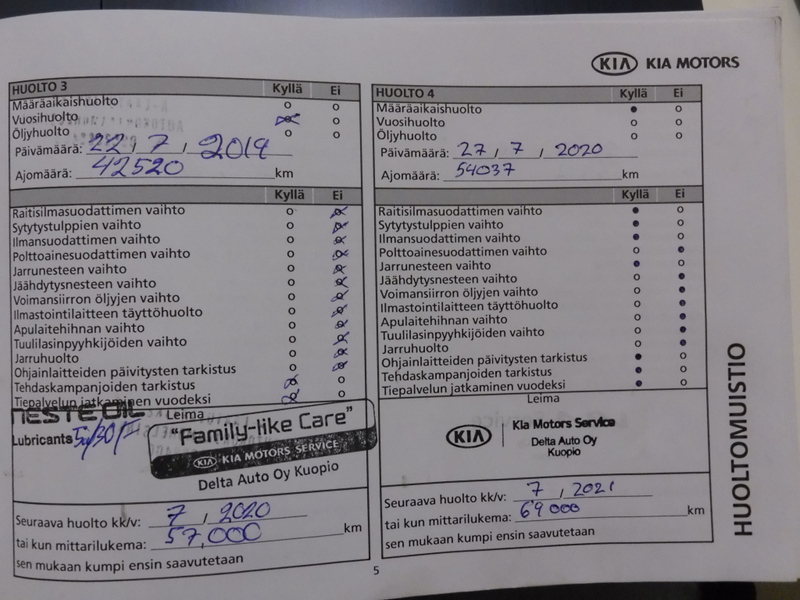 KIA KIA MOTORS
HUOLTO 3 Kyllä Ei
Määräaikaishuolto o o
Vuosihuolto o
Öljyhuolto o o
Päivämäärä: 22 / 7 / 2019
Ajomäärä: 42520 km
Kyllä Ei
Raitisilmasuodattimen vaihto o
Sytytystulppien vaihto o
Ilmansuodattimen vaihto o
Polttoainesuodattimen vaihto o
Jarrunesteen vaihto o
Jäähdytysnesteen vaihto o
Voimansiirron öljyjen vaihto o
Ilmastointilaitteen täyttöhuolto o
Apulaitehihnan vaihto o
Tuulilasinpyyhkijöiden vaihto o
Jarruhuolto o
Ohjainlaitteiden päivitysten tarkistus o
Tehdaskampanjoiden tarkistus o
Tiepalvelun jatkaminen vuodeksi o
NESTE OIL Leima
Lubricants 5w/30/
"Family-like Care"
KIA KIA MOTORS SERVICE
Delta Auto Oy Kuopio
Seuraava huolto kk/v: 7 / 2020
tai kun mittarilukema: 57,000 km
sen mukaan kumpi ensin saavutetaan
HUOLTO 4 Kyllä Ei
Määräaikaishuolto • o
Vuosihuolto o o
Öljyhuolto o o
Päivämäärä: 27 / 7 / 2020
Ajomäärä: 54037 km
Kyllä Ei
Raitisilmasuodattimen vaihto • o
Sytytystulppien vaihto • o
Ilmansuodattimen vaihto • o
Polttoainesuodattimen vaihto o •
Jarrunesteen vaihto • o
Jäähdytysnesteen vaihto o •
Voimansiirron öljyjen vaihto o •
Ilmastointilaitteen täyttöhuolto o •
Apulaitehihnan vaihto o •
Tuulilasinpyyhkijöiden vaihto o •
Jarruhuolto o •
Ohjainlaitteiden päivitysten tarkistus • o
Tehdaskampanjoiden tarkistus • o
Tiepalvelun jatkaminen vuodeksi • o
Leima
KIA Kia Motors Service
Delta Auto Oy
Kuopio
Seuraava huolto kk/v: 7 / 2021
tai kun mittarilukema: 69000 km
sen mukaan kumpi ensin saavutetaan
HUOLTOMUISTIO
5